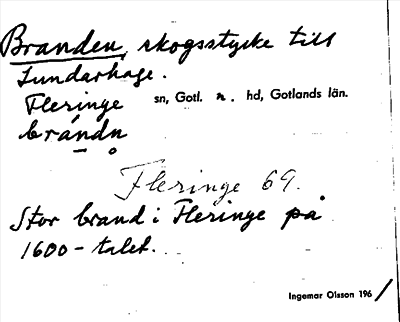 Branden, skogsstycke till
Lundarhage.
Fleringe sn, Gotl. n. hd, Gotlands län.
brándn̥
Fleringe 69.
Stor brand i Fleringe på
1600-talet.
Ingemar Olsson 196/